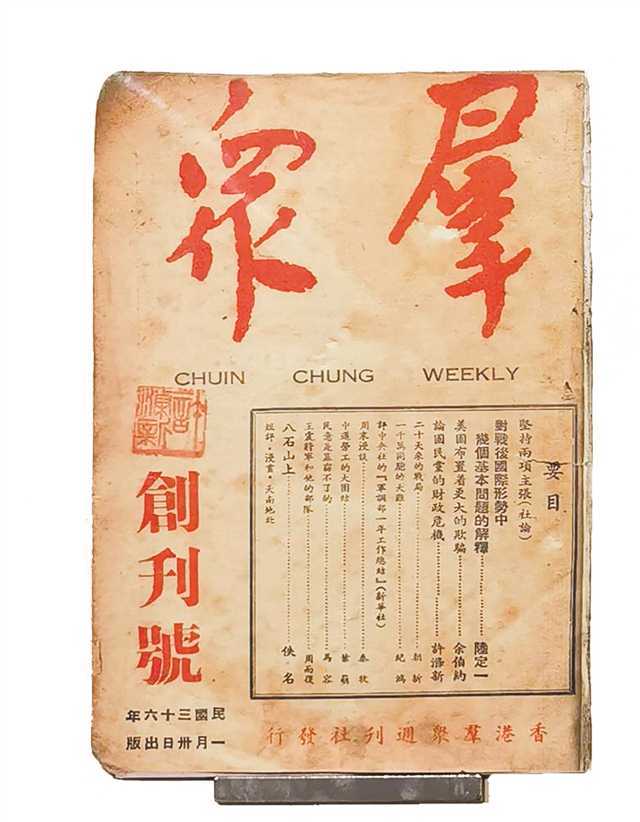 羣眾
CHUIN CHUNG WEEKLY
要目
堅持兩項主張（社論）
對戰後國際形勢中
幾個基本問題的解釋 陸定一
美國布置着更大的欺騙 余伯約
論國民黨的財政危機 許滌新
二十天來的戰局
一千萬同胞的大難 紀鴻
評中央社的「軍調部一年工作總結」（新華社）
周末漫談 秦牧
中運勞工的大團結
民意是篡竊不了的 馬容
王震將軍和他的部隊 周而復
八石山上 佚名
短評・漫畫・天南地北
創刊號
民國三十六年
一月卅日出版
香港羣眾週刊社發行